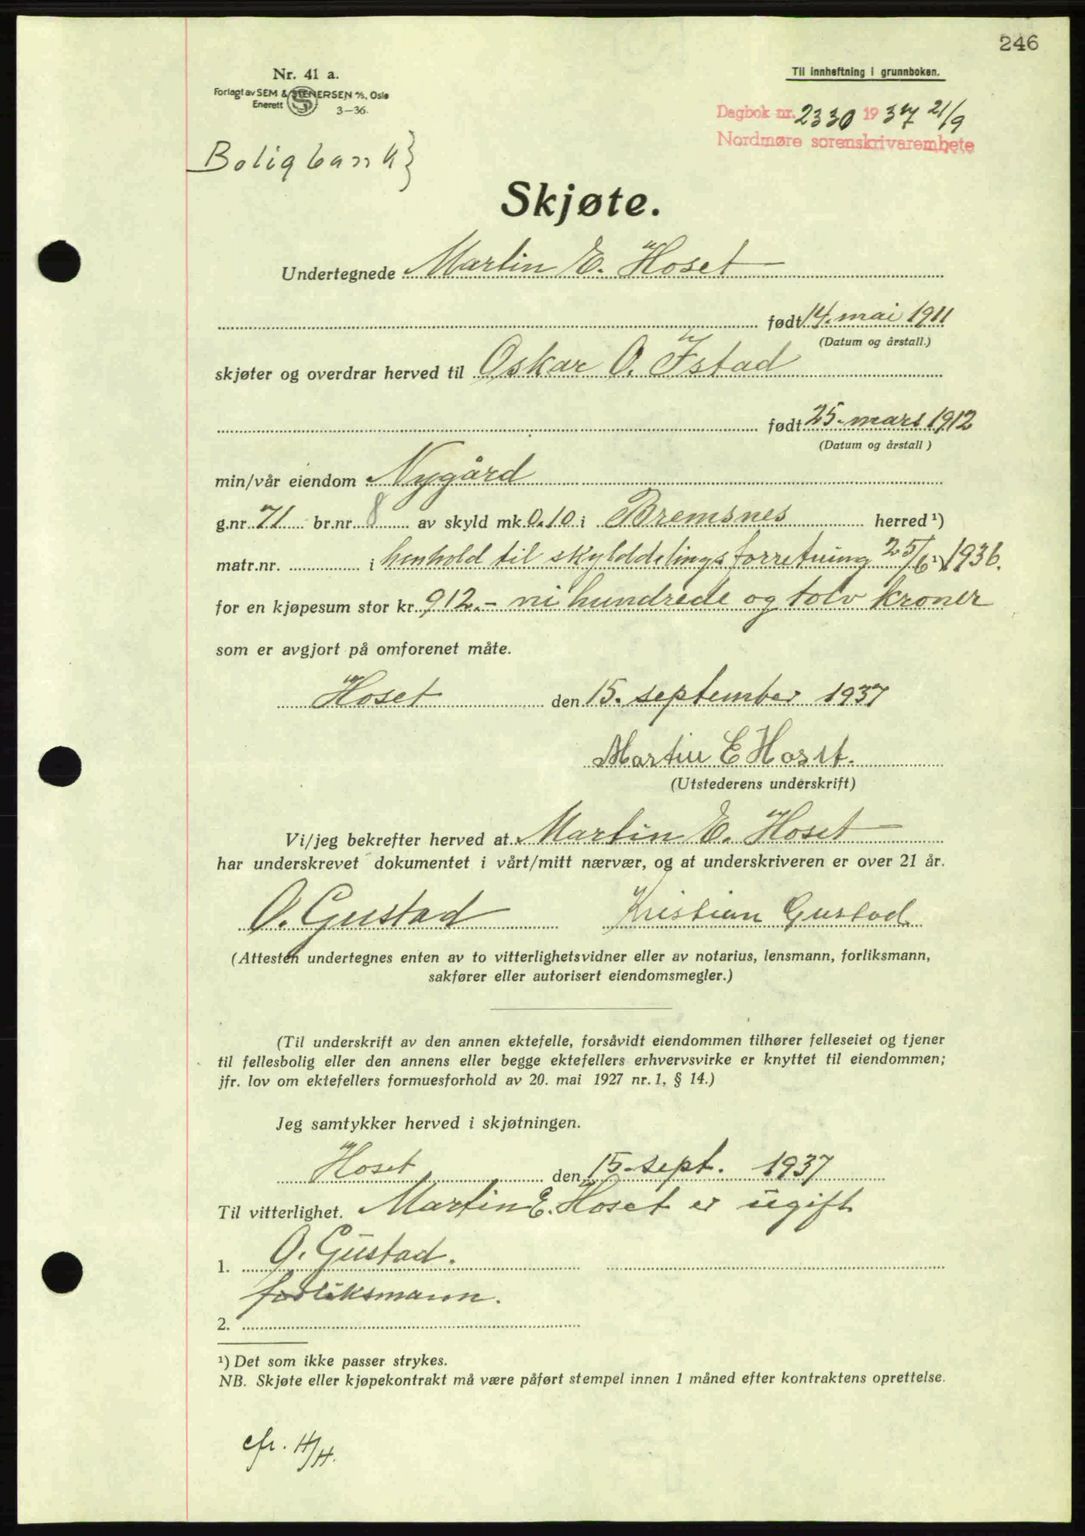 246
Nr. 41 a.
Forlagt av SEM & STENERSEN A/S, Oslo
Enerett
3-36.
Til innheftning i grunnboken.
Dagbok nr. 2330 1937 21/9
Nordmøre sorenskrivarembete
Boligbank}
Skjøte.
Undertegnede Martin E. Hoset
født 14. mai 1911
(Datum og årstall.)
skjøter og overdrar herved til Oskar O. Istad
født 25. mars 1912
(Datum og årstall)
min/vår eiendom Nygård
g.nr. 71 br.nr. 8 av skyld mk. 0.10 i Bremsnes herred ¹)
matr.nr. i henhold til skylddelingsforretning 25/6 ¹) 1936.
for en kjøpesum stor kr. 912.- ni hundrede og tolv kroner
som er avgjort på omforenet måte.
Hoset den 15. september 1937
Martin E Hoset.
(Utstederens underskrift)
Vi/jeg bekrefter herved at Martin E. Hoset
har underskrevet dokumentet i vårt/mitt nærvær, og at underskriveren er over 21 år.
O. Gustad Kristian Gustad
(Attesten undertegnes enten av to vitterlighetsvidner eller av notarius, lensmann, forliksmann,
sakfører eller autorisert eiendomsmegler.)
(Til underskrift av den annen ektefelle, forsåvidt eiendommen tilhører felleseiet og tjener
til fellesbolig eller den annens eller begge ektefellers erhvervsvirke er knyttet til eiendommen;
jfr. lov om ektefellers formuesforhold av 20. mai 1927 nr. 1, § 14.)
Jeg samtykker herved i skjøtningen.
Hoset den 15. sept. 1937
Til vitterlighet. Martin E. Hoset er ugift
1. O. Gustad.
forliksmann.
2.
¹) Det som ikke passer strykes.
NB. Skjøte eller kjøpekontrakt må være påført stempel innen 1 måned efter kontraktens oprettelse.
cfr. H/H.